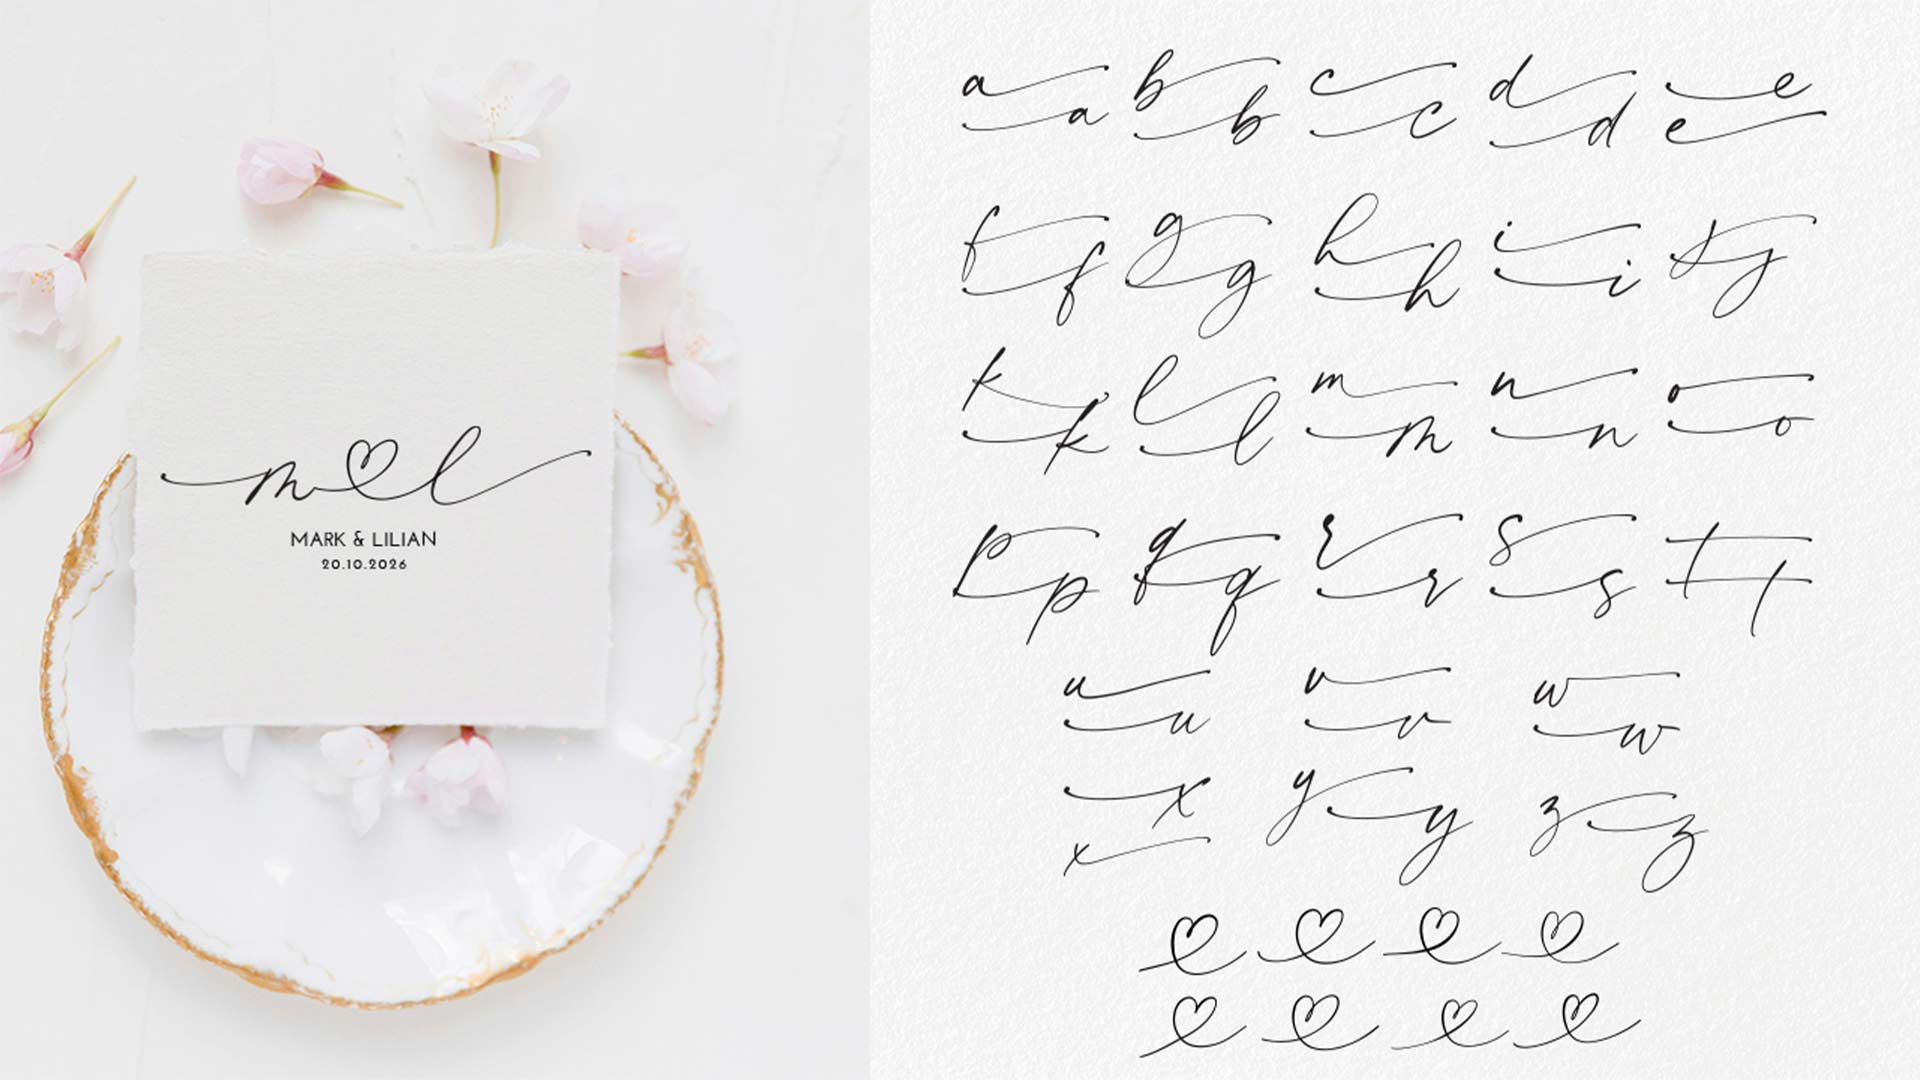 m l
MARK & LILIAN
20.10.2026
a b c d e
a b c d e
f g h i j
f g h i j
k l m n o
k l m n o
p q r s t
p q r s t
u v w
u v w
x y z
x y z